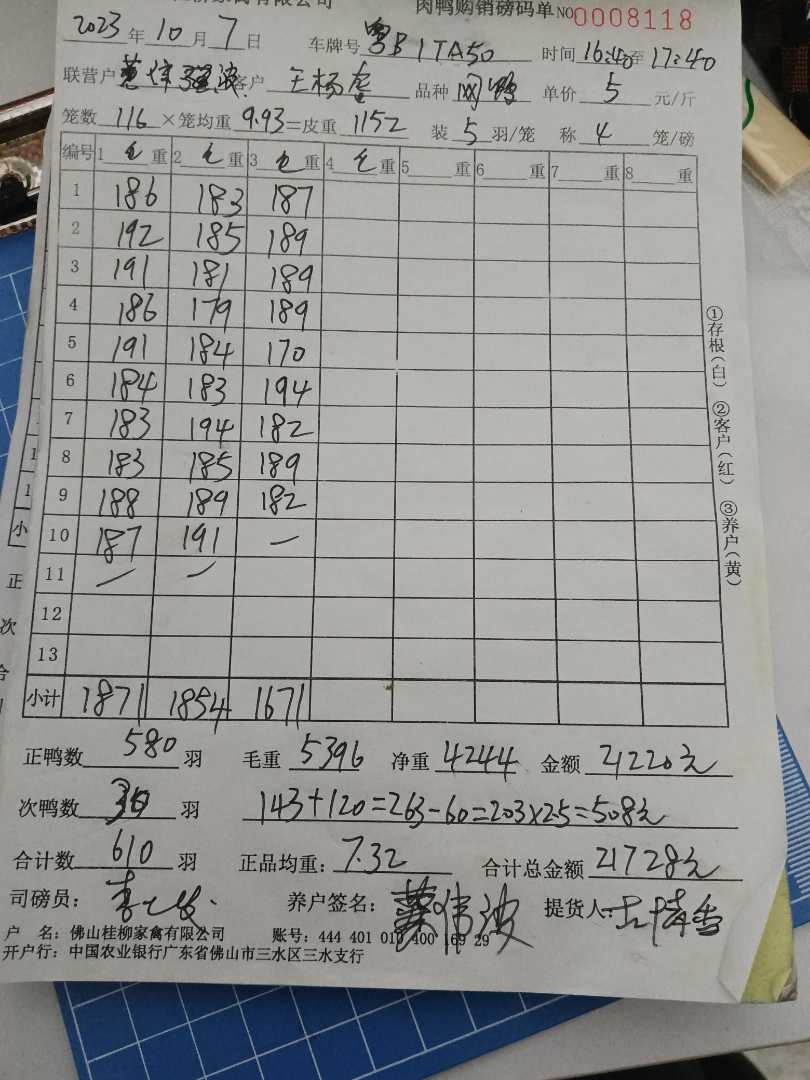 家禽有限公司 肉鸭购销磅码单 NO 0008118
2023年10月7日 车牌号 粤B1TA50 时间 16:40至17:40
联营户 客户 王杨 品种 单价 5 元/斤
笼数 116 ×笼均重 9.93 =皮重 1152 装 5 羽/笼 称 4 笼/磅
编号 1 毛 重 2 毛 重 3 毛 重 4 毛 重 5 重 6 重 7 重 8 重
1 186 183 187
2 192 185 189
3 191 181 189
4 186 179 189
5 191 184 170
6 184 183 194
7 183 194 182
8 183 185 189
9 188 189 182
10 187 191 —
11 — —
12
13
小计 1871 1854 1671
①存根(白) ②客户(红) ③养户(黄)
正鸭数 580 羽 毛重 5396 净重 4244 金额 21220元
次鸭数 30 羽 143+120=263-60=203×2.5=508元
合计数 610 羽 正品均重: 7.32 合计总金额 21728元
司磅员: 养户签名: 伟波 提货人:
户 名: 佛山桂柳家禽有限公司 账号: 444 401 010 400 169 29
开户行: 中国农业银行广东省佛山市三水区三水支行
小
正
次
合